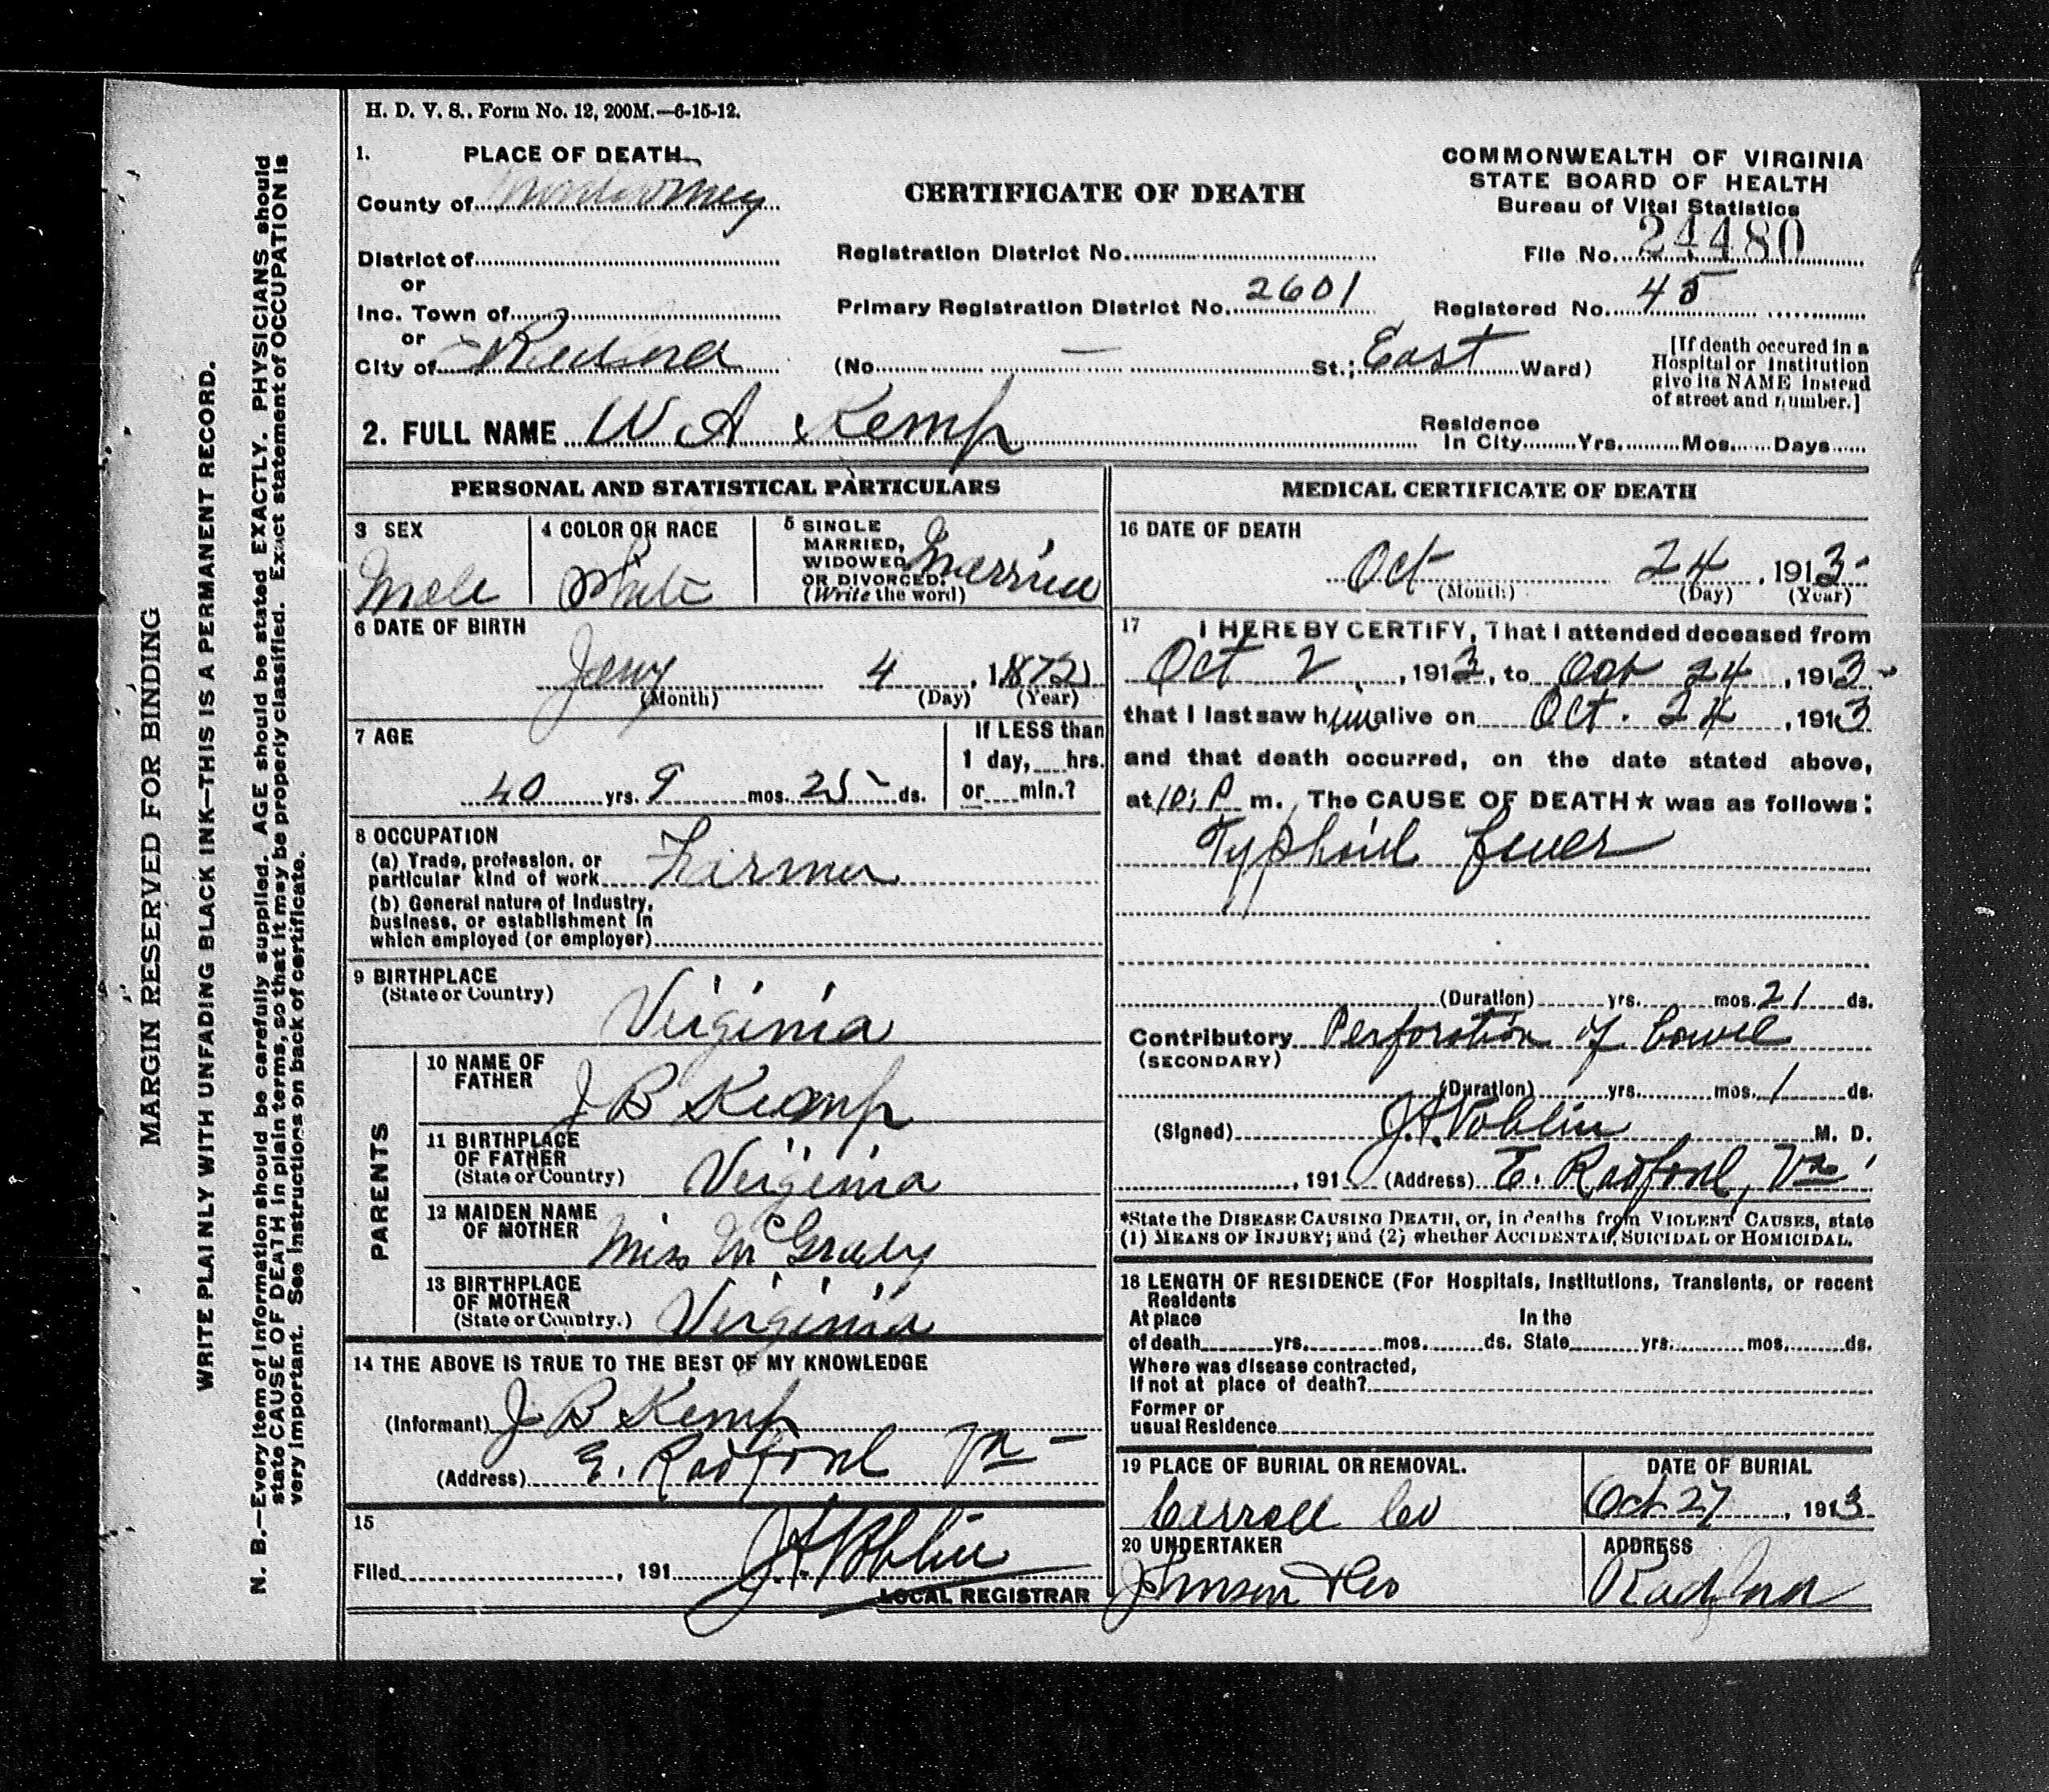 H. D. V. S.. Form No. 12, 200M.—6-15-12.
1. PLACE OF DEATH
County of Montgomery
District of
or
Inc. Town of
or
City of Radford
CERTIFICATE OF DEATH
Registration District No.
Primary Registration District No. 2601
(No. — St.; East Ward)
COMMONWEALTH OF VIRGINIA
STATE BOARD OF HEALTH
Bureau of Vital Statistics
File No. 24480
Registered No. 45
[If death occured in a
Hospital or Institution
give its NAME instead
of street and number.]
2. FULL NAME W A Kemp
Residence
In City Yrs. Mos. Days
PERSONAL AND STATISTICAL PARTICULARS
3 SEX
Male
4 COLOR OR RACE
White
5 SINGLE
MARRIED,
WIDOWED
OR DIVORCED.
(Write the word)
Married
6 DATE OF BIRTH
Jany 4, 1872
(Month) (Day) (Year)
7 AGE
40 yrs. 9 mos. 25 ds.
If LESS than
1 day, hrs.
or min.?
8 OCCUPATION
(a) Trade, profession, or
particular kind of work Farmer
(b) General nature of Industry,
business, or establishment in
which employed (or employer)
9 BIRTHPLACE
(State or Country)
Virginia
PARENTS
10 NAME OF
FATHER
J B Kemp
11 BIRTHPLACE
OF FATHER
(State or Country)
Virginia
12 MAIDEN NAME
OF MOTHER
Miss McGrady
13 BIRTHPLACE
OF MOTHER
(State or Country.)
Virginia
14 THE ABOVE IS TRUE TO THE BEST OF MY KNOWLEDGE
(Informant) J B Kemp
(Address) E. Radford Va —
15
Filed , 191
LOCAL REGISTRAR
MEDICAL CERTIFICATE OF DEATH
16 DATE OF DEATH
Oct 24, 1913
(Month) (Day) (Year)
17 I HEREBY CERTIFY, That I attended deceased from
Oct 2, 1913, to Oct 24, 1913
that I last saw him alive on Oct. 24, 1913
and that death occurred, on the date stated above,
at 10; P m. The CAUSE OF DEATH★ was as follows:
Typhoid fever
(Duration) yrs. mos. 21 ds.
Contributory Perforation of bowel
(SECONDARY)
(Duration) yrs. mos. 1 ds.
(Signed) M. D.
, 191 (Address) E. Radford, Va
*State the DISEASE CAUSING DEATH, or, in deaths from VIOLENT CAUSES, state
(1) MEANS OF INJURY; and (2) whether ACCIDENTAL, SUICIDAL or HOMICIDAL.
18 LENGTH OF RESIDENCE (For Hospitals, Institutions, Transients, or recent
Residents
At place In the
of death yrs. mos. ds. State yrs. mos. ds.
Where was disease contracted,
If not at place of death?
Former or
usual Residence
19 PLACE OF BURIAL OR REMOVAL.
Carroll Co
DATE OF BURIAL
Oct 27, 1913
20 UNDERTAKER
Johnson & Co
ADDRESS
Radford
MARGIN RESERVED FOR BINDING
WRITE PLAINLY WITH UNFADING BLACK INK—THIS IS A PERMANENT RECORD.
N. B.—Every item of information should be carefully supplied. AGE should be stated EXACTLY. PHYSICIANS should
state CAUSE OF DEATH in plain terms, so that it may be properly classified. Exact statement of OCCUPATION is
very important. See instructions on back of certificate.